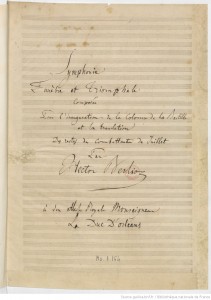 Symphonie
Funèbre et Triomphale
Composée
Pour l'inauguration de la Colonne de la Bastille
et la translation
Des restes des Combattants de Juillet
Par
Hector Berlioz
à son Altesse Royale Monseigneur
Le Duc D'orléans
Source gallica.bnf.fr / Bibliothèque nationale de France